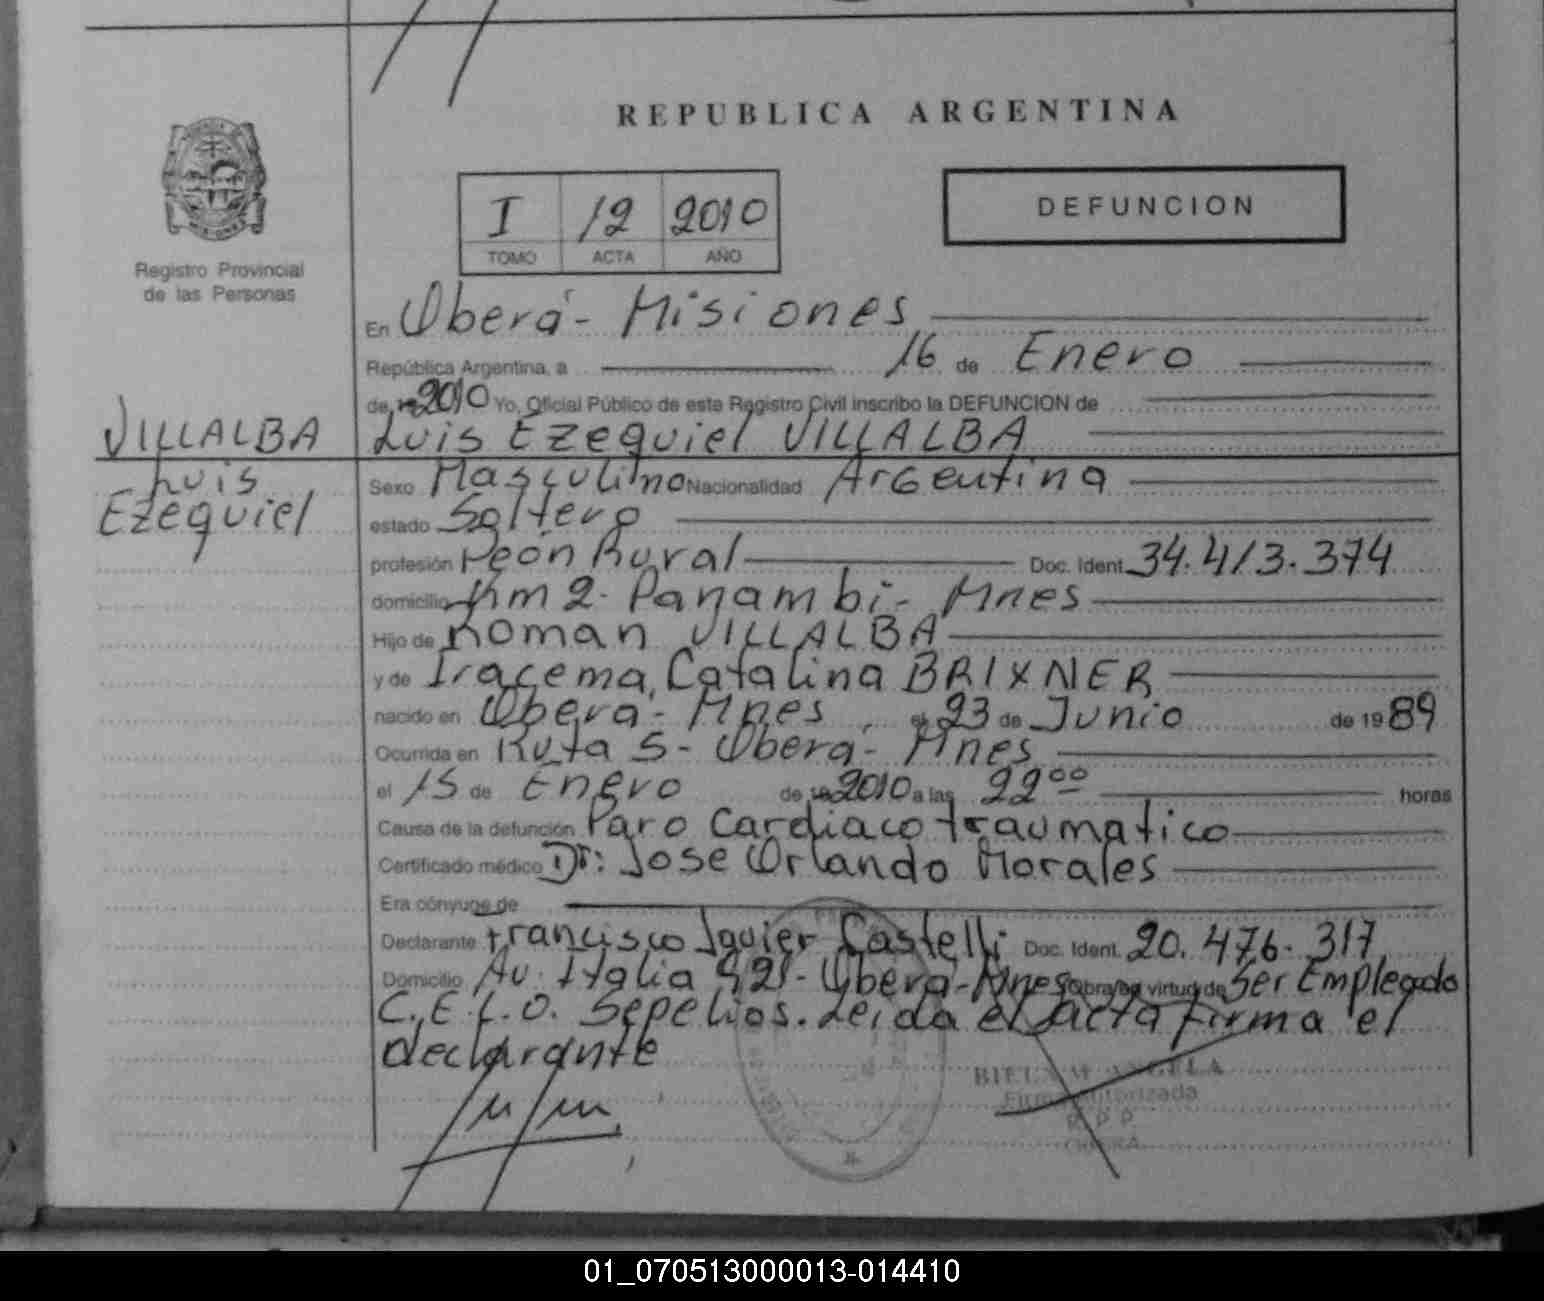 REPUBLICA ARGENTINA
I 12 2010
TOMO ACTA AÑO
DEFUNCION
Registro Provincial
de las Personas
En Oberá - Misiones
República Argentina, a 16 de Enero
de 2010 Yo, Oficial Público de este Registro Civil inscribo la DEFUNCION de
VILLALBA
Luis
Ezequiel
Luis Ezequiel VILLALBA
Sexo Masculino Nacionalidad Argentina
estado Soltero
profesión Peón Rural Doc. Ident. 34.413.374
domicilio Km 2. Panambi - Mnes
Hijo de Roman VILLALBA
y de Iracema, Catalina BRIXNER
nacido en Oberá - Mnes el 23 de Junio de 1989
Ocurrida en Ruta 5 - Oberá - Mnes
el 15 de Enero de 2010 a las 2200 horas
Causa de la defunción Paro Cardiaco traumatico
Certificado médico Dr: Jose Orlando Morales
Era cónyuge de
Declarante Francisco Javier Castelli Doc. Ident. 20.476.317
Domicilio Av. Italia 421 - Oberá - Mnes Obra en virtud de Ser Empleado
C.E.L.O. Sepelios. Leida el acta firma el
declarante
Firma Autorizada
R.P.P.
OBERA
01_070513000013-014410